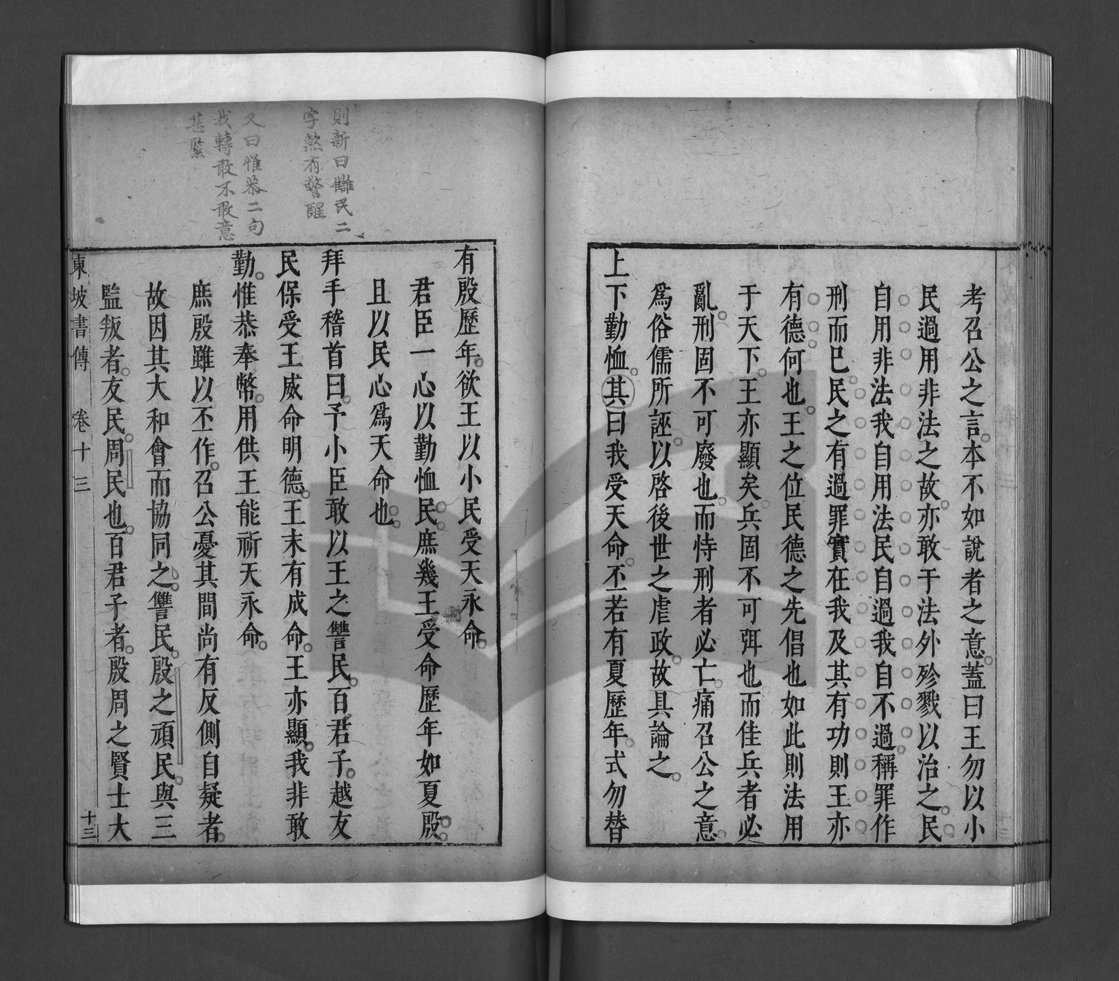 考召公之言本不如說者之意蓋曰王勿以小
民過用非法之故亦敢于法外殄戮以治之民
自用非法我自用法民自過我自不過稱罪作
刑而已民之有過罪實在我及其有功則王亦
有德何也王之位民德之先倡也如此則法用
于天下王亦顯矣兵固不可弭也而佳兵者必
亂刑固不可廢也而恃刑者必亡痛召公之意
爲俗儒所誣以啓後世之虐政故具論之
上下勤恤其曰我受天命丕若有夏歷年式勿替
有殷歷年欲王以小民受天永命
君臣一心以勤恤民庶幾王受命歷年如夏殷
且以民心爲天命也
拜手稽首曰予小臣敢以王之讐民百君子越友
民保受王威命明德王末有成命王亦顯我非敢
勤惟恭奉幣用供王能祈天永命
庶殷雖以丕作召公憂其間尚有反側自疑者
故因其大和會而協同之讐民殷之頑民與三
監叛者友民周民也百君子者殷周之賢士大
東坡書傳 卷十三 十三
則新曰讎民二
字煞有警醒
又曰惟恭二句
我轉敢不敢意
甚緊